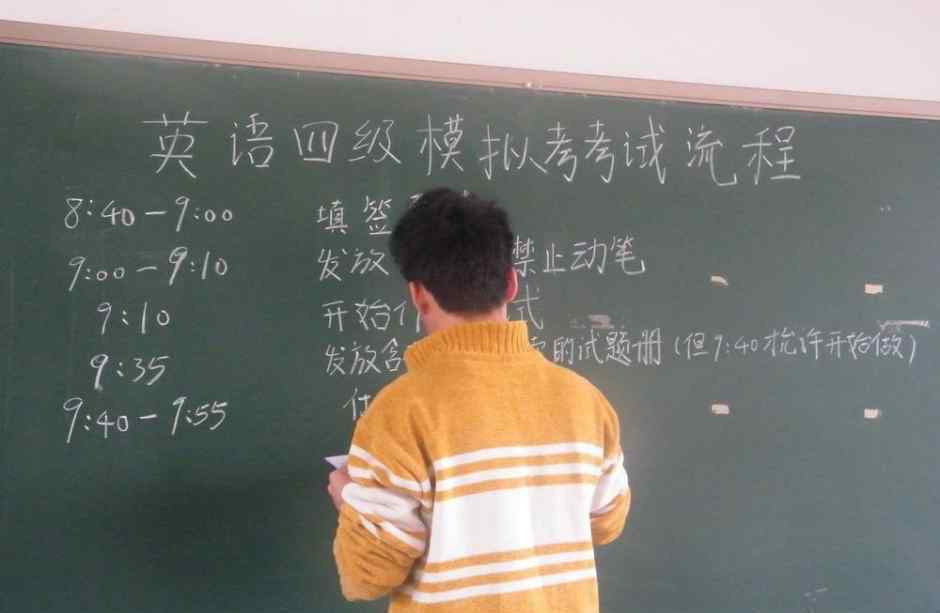 英语四级模拟考考试流程
8:40-9:00 填签
9:00-9:10 发放 禁止动笔
9:10 开始 式
9:35 发放含 的试题册(但9:40才允许开始做)
9:40-9:55